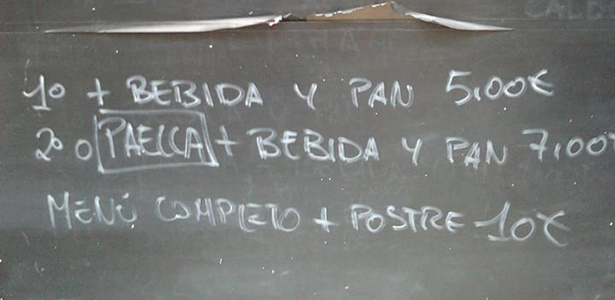 CALD
1º + BEBIDA Y PAN 5,00€
2º O PAELLA + BEBIDA Y PAN 7,00€
MENÚ COMPLETO + POSTRE 10€